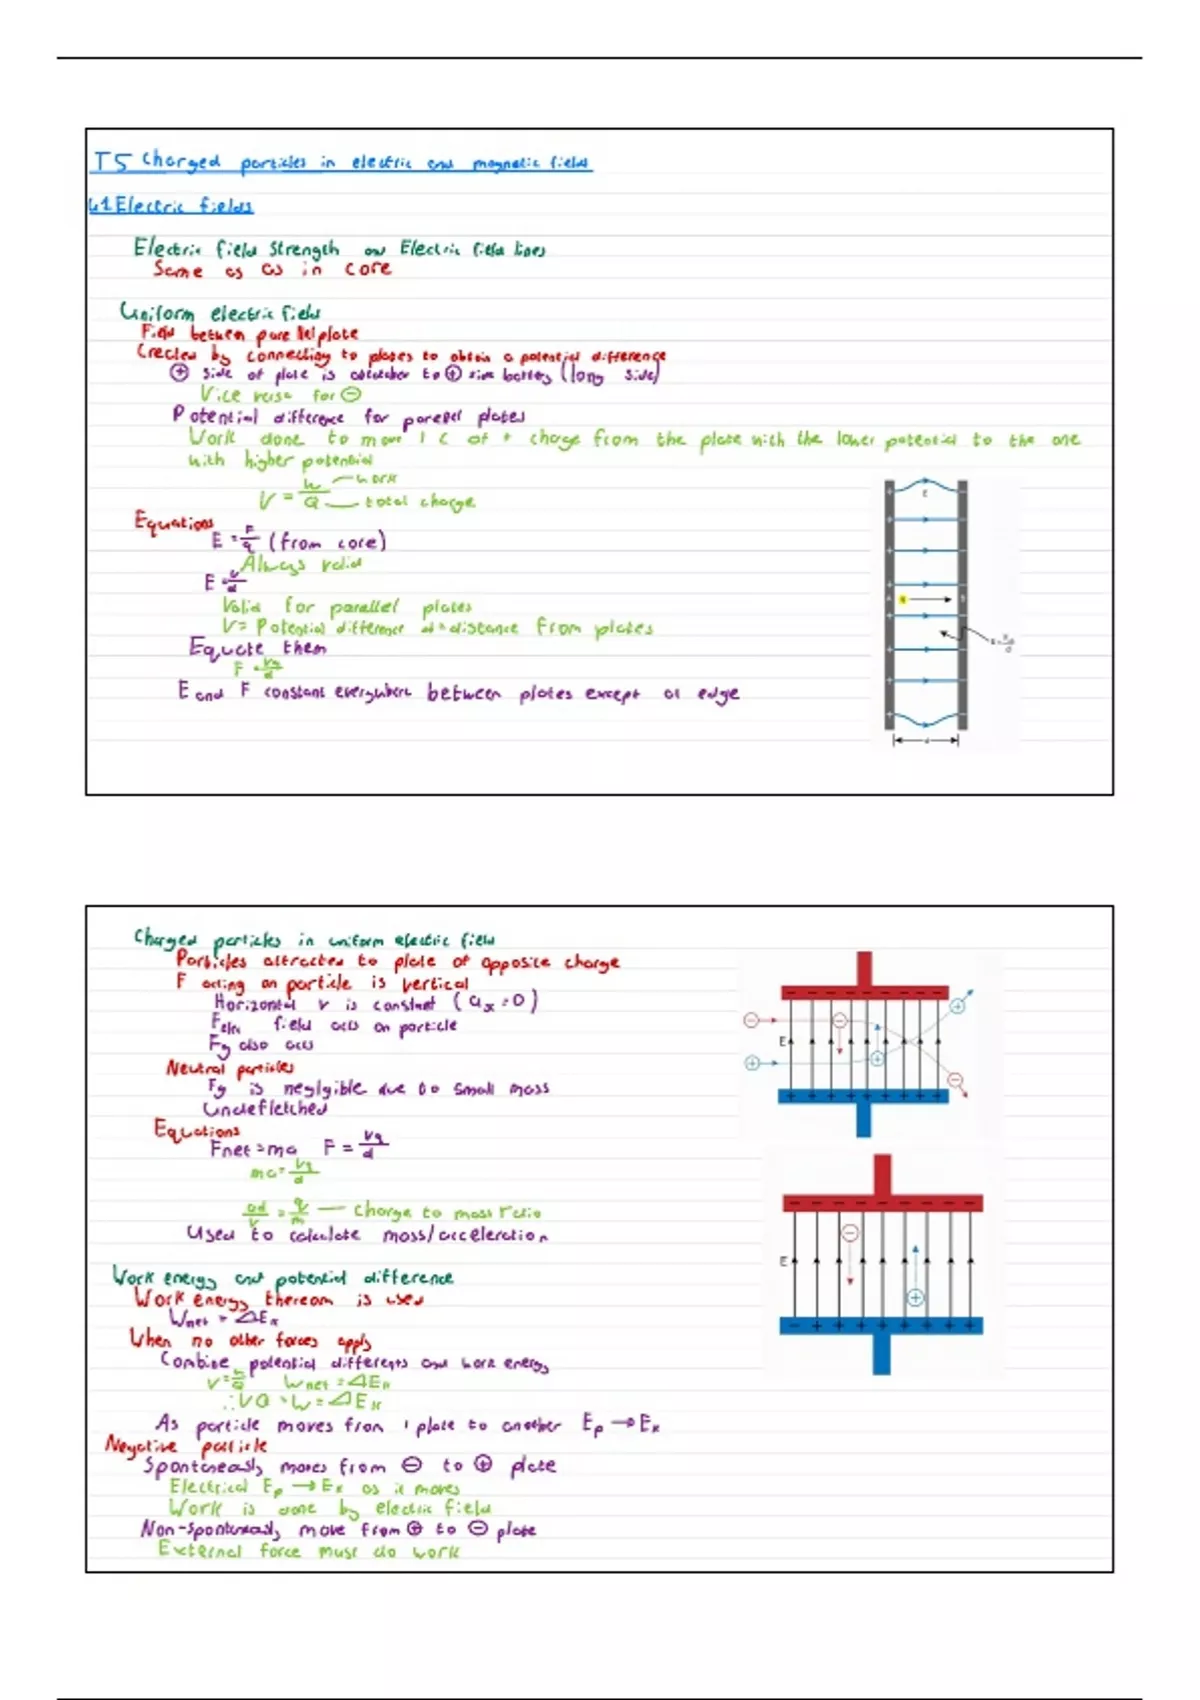 T5 Charged particles in electric and magnetic fields
4.1 Electric fields
Electric field strength and Electric field lines
Same as as in core
Uniform electric field
Field between parallel plate
Created by connecting to plates to obtain a potential difference
⊕ side of plate is attached to ⊕ side battery (long side)
Vice versa for ⊖
Potential difference for parallel plates
Work done to move 1 C of + charge from the plate with the lower potential to the one
with higher potential
V = W/Q work total charge
Equations
E = F/q (from core)
Always valid
E = V/d
Valid for parallel plates
V = Potential difference d = distance from plates
Equate them
F = Vq/d
E and F constant everywhere between plates except at edge
E
A
B
d
Charged particles in uniform electric field
Particles attracted to plate of opposite charge
F acting on particle is vertical
Horizontal v is constant (ax = 0)
Felec field acts on particle
Fg also acts
Neutral particles
Fg is neglgible due to small mass
Undefletched
Equations
Fnet = ma F = Vq/d
ma = Vq/d
ad/V = q/m — charge to mass ratio
Used to calculate mass/acceleration
Work energy and potential difference
Work energy thereom is used
Wnet = ΔEk
When no other forces apply
Combine potential differents and work energy
V = W/Q Wnet = ΔEk
∴ VQ = W = ΔEk
As particle moves from 1 plate to another Ep → Ek
Negative particle
Spontaneously moves from ⊖ to ⊕ plate
Electrical Ep → Ek as it moves
Work is done by electric field
Non-spontaneously move from ⊕ to ⊖ plate
External force must do work
E
E